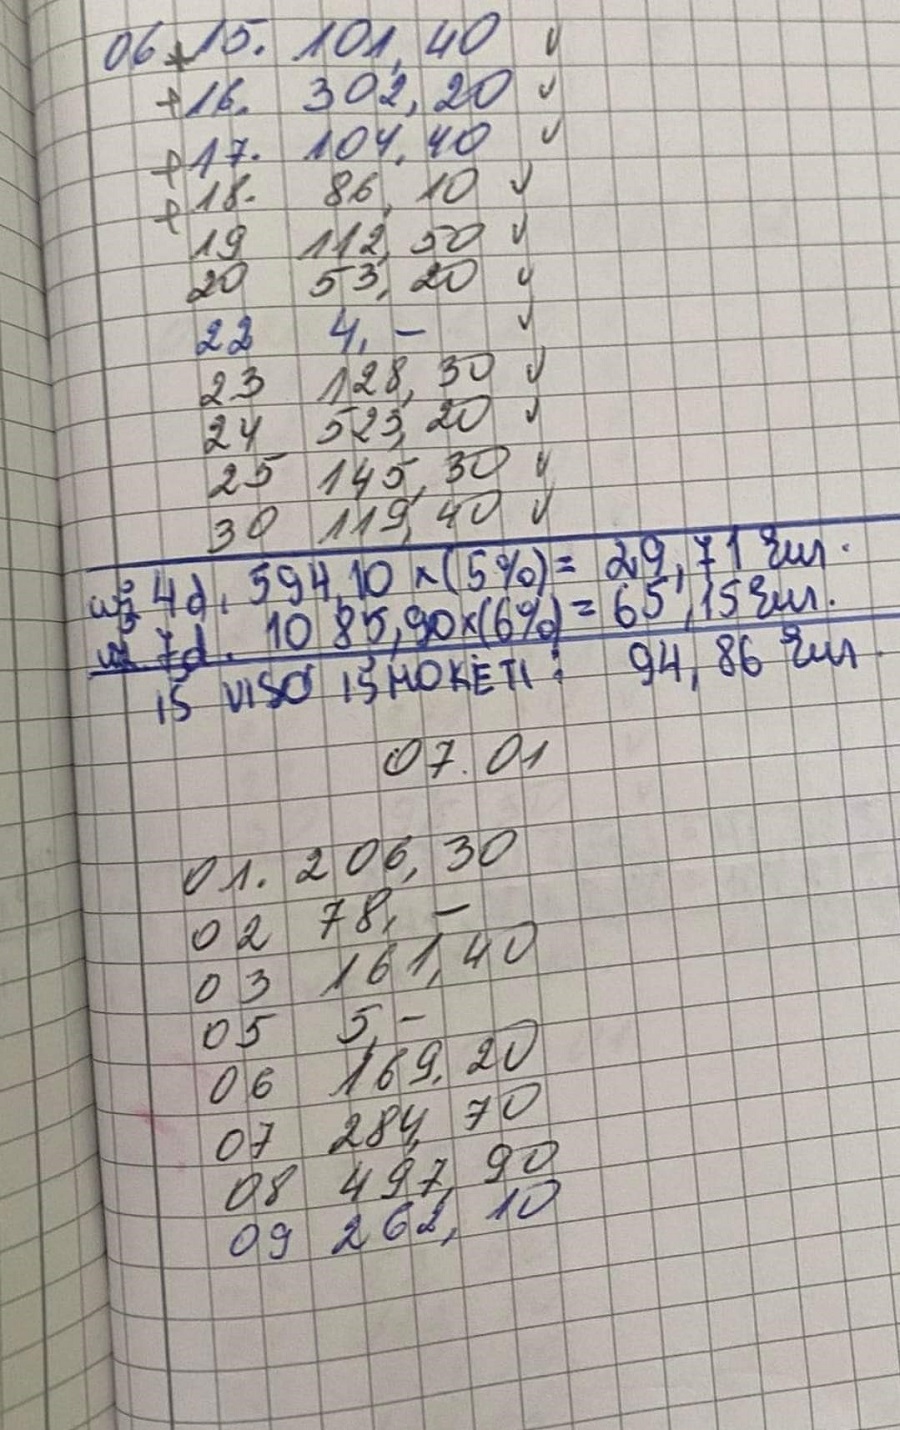 06 +15. 101,40 ✓
+16. 302,20 ✓
+17. 104,40 ✓
+18. 86,10 ✓
19 112,50 ✓
20 53,20 ✓
22 4,- ✓
23 128,30 ✓
24 523,20 ✓
25 145,30 ✓
30 119,40 ✓
už 4d. 594,10 x (5%) = 29,71 Eur.
už 7d. 1085,90 x (6%) = 65,15 Eur.
IŠ VISO IŠMOKĖTI: 94,86 Eur.
07.01
01. 206,30
02 78,-
03 161,40
05 5,-
06 169,20
07 284,70
08 497,90
09 262,10